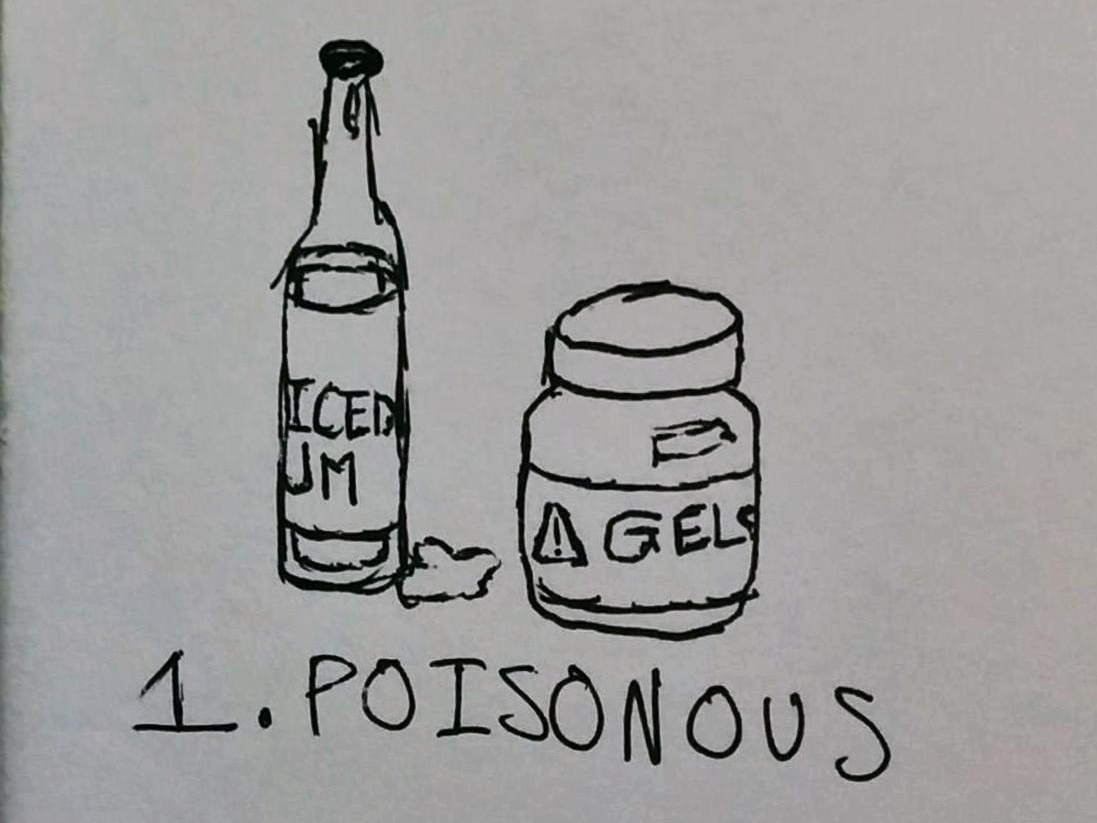 ICED
JM
⚠ GELS
1. POISONOUS